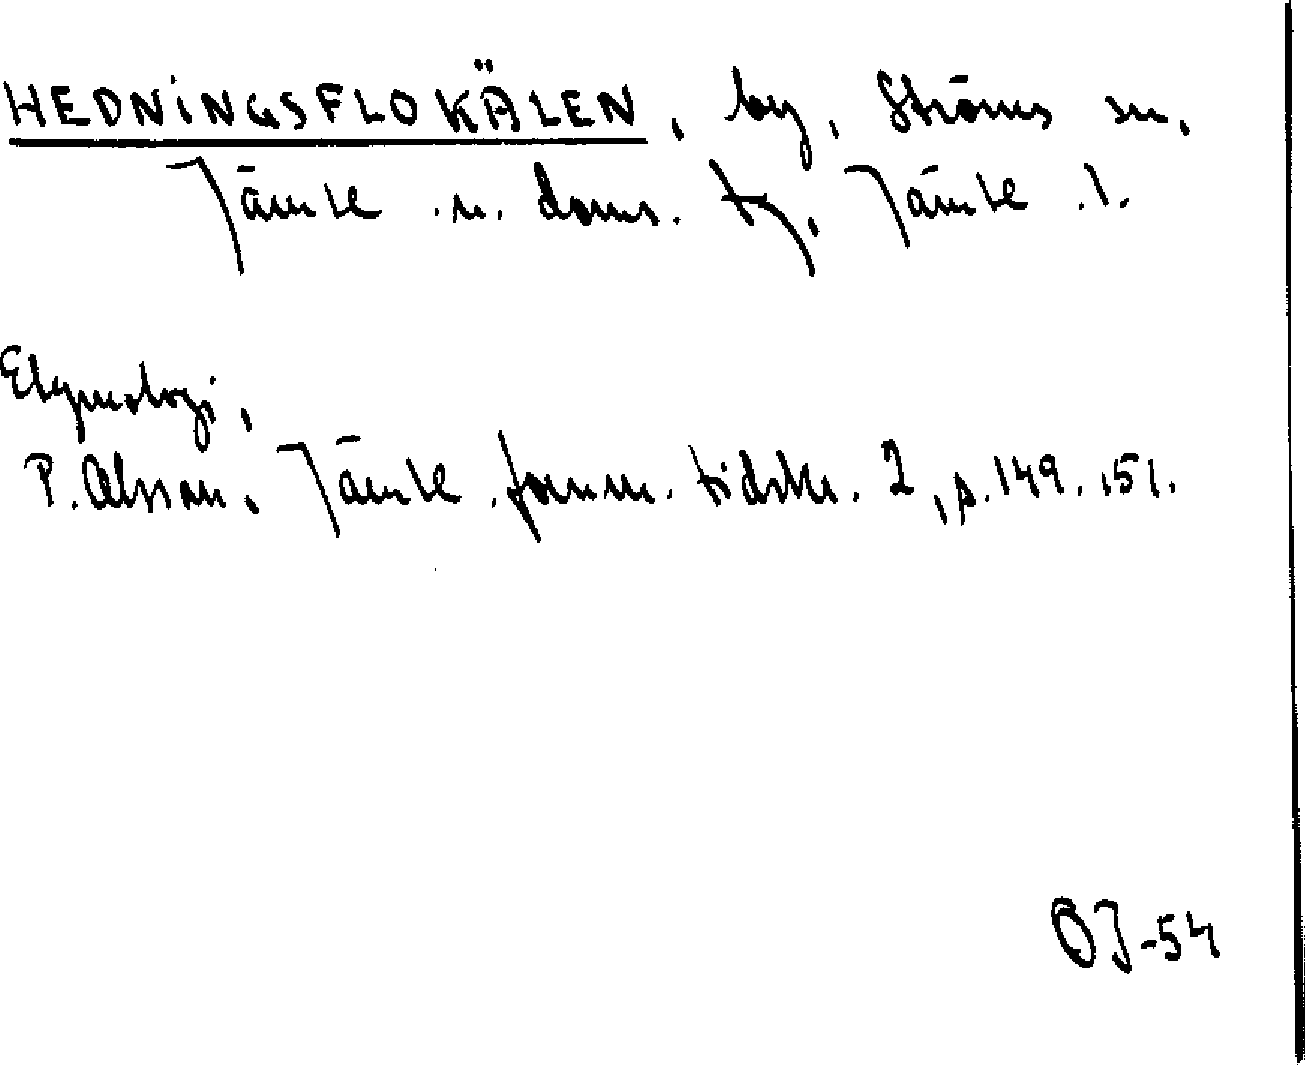 HEDNINGSFLOKÄLEN, by, Ströms sn,
Jämtl. n. doms. tj. Jämtl. l.
Etymologi,
P. Olsson, Jämtl. fornm. tidskr. 2, s. 149. 151.
OJ-54